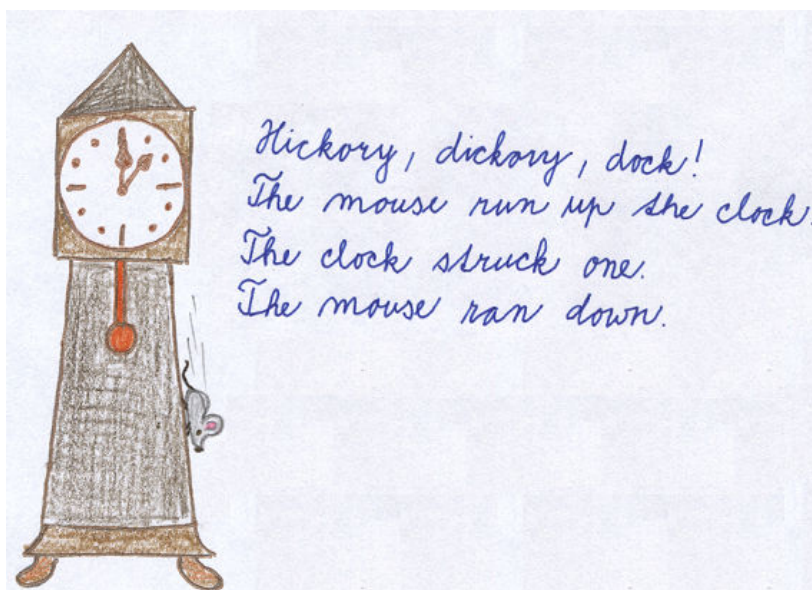 Hickory, dickory, dock!
The mouse run up the clock.
The clock struck one.
The mouse ran down.